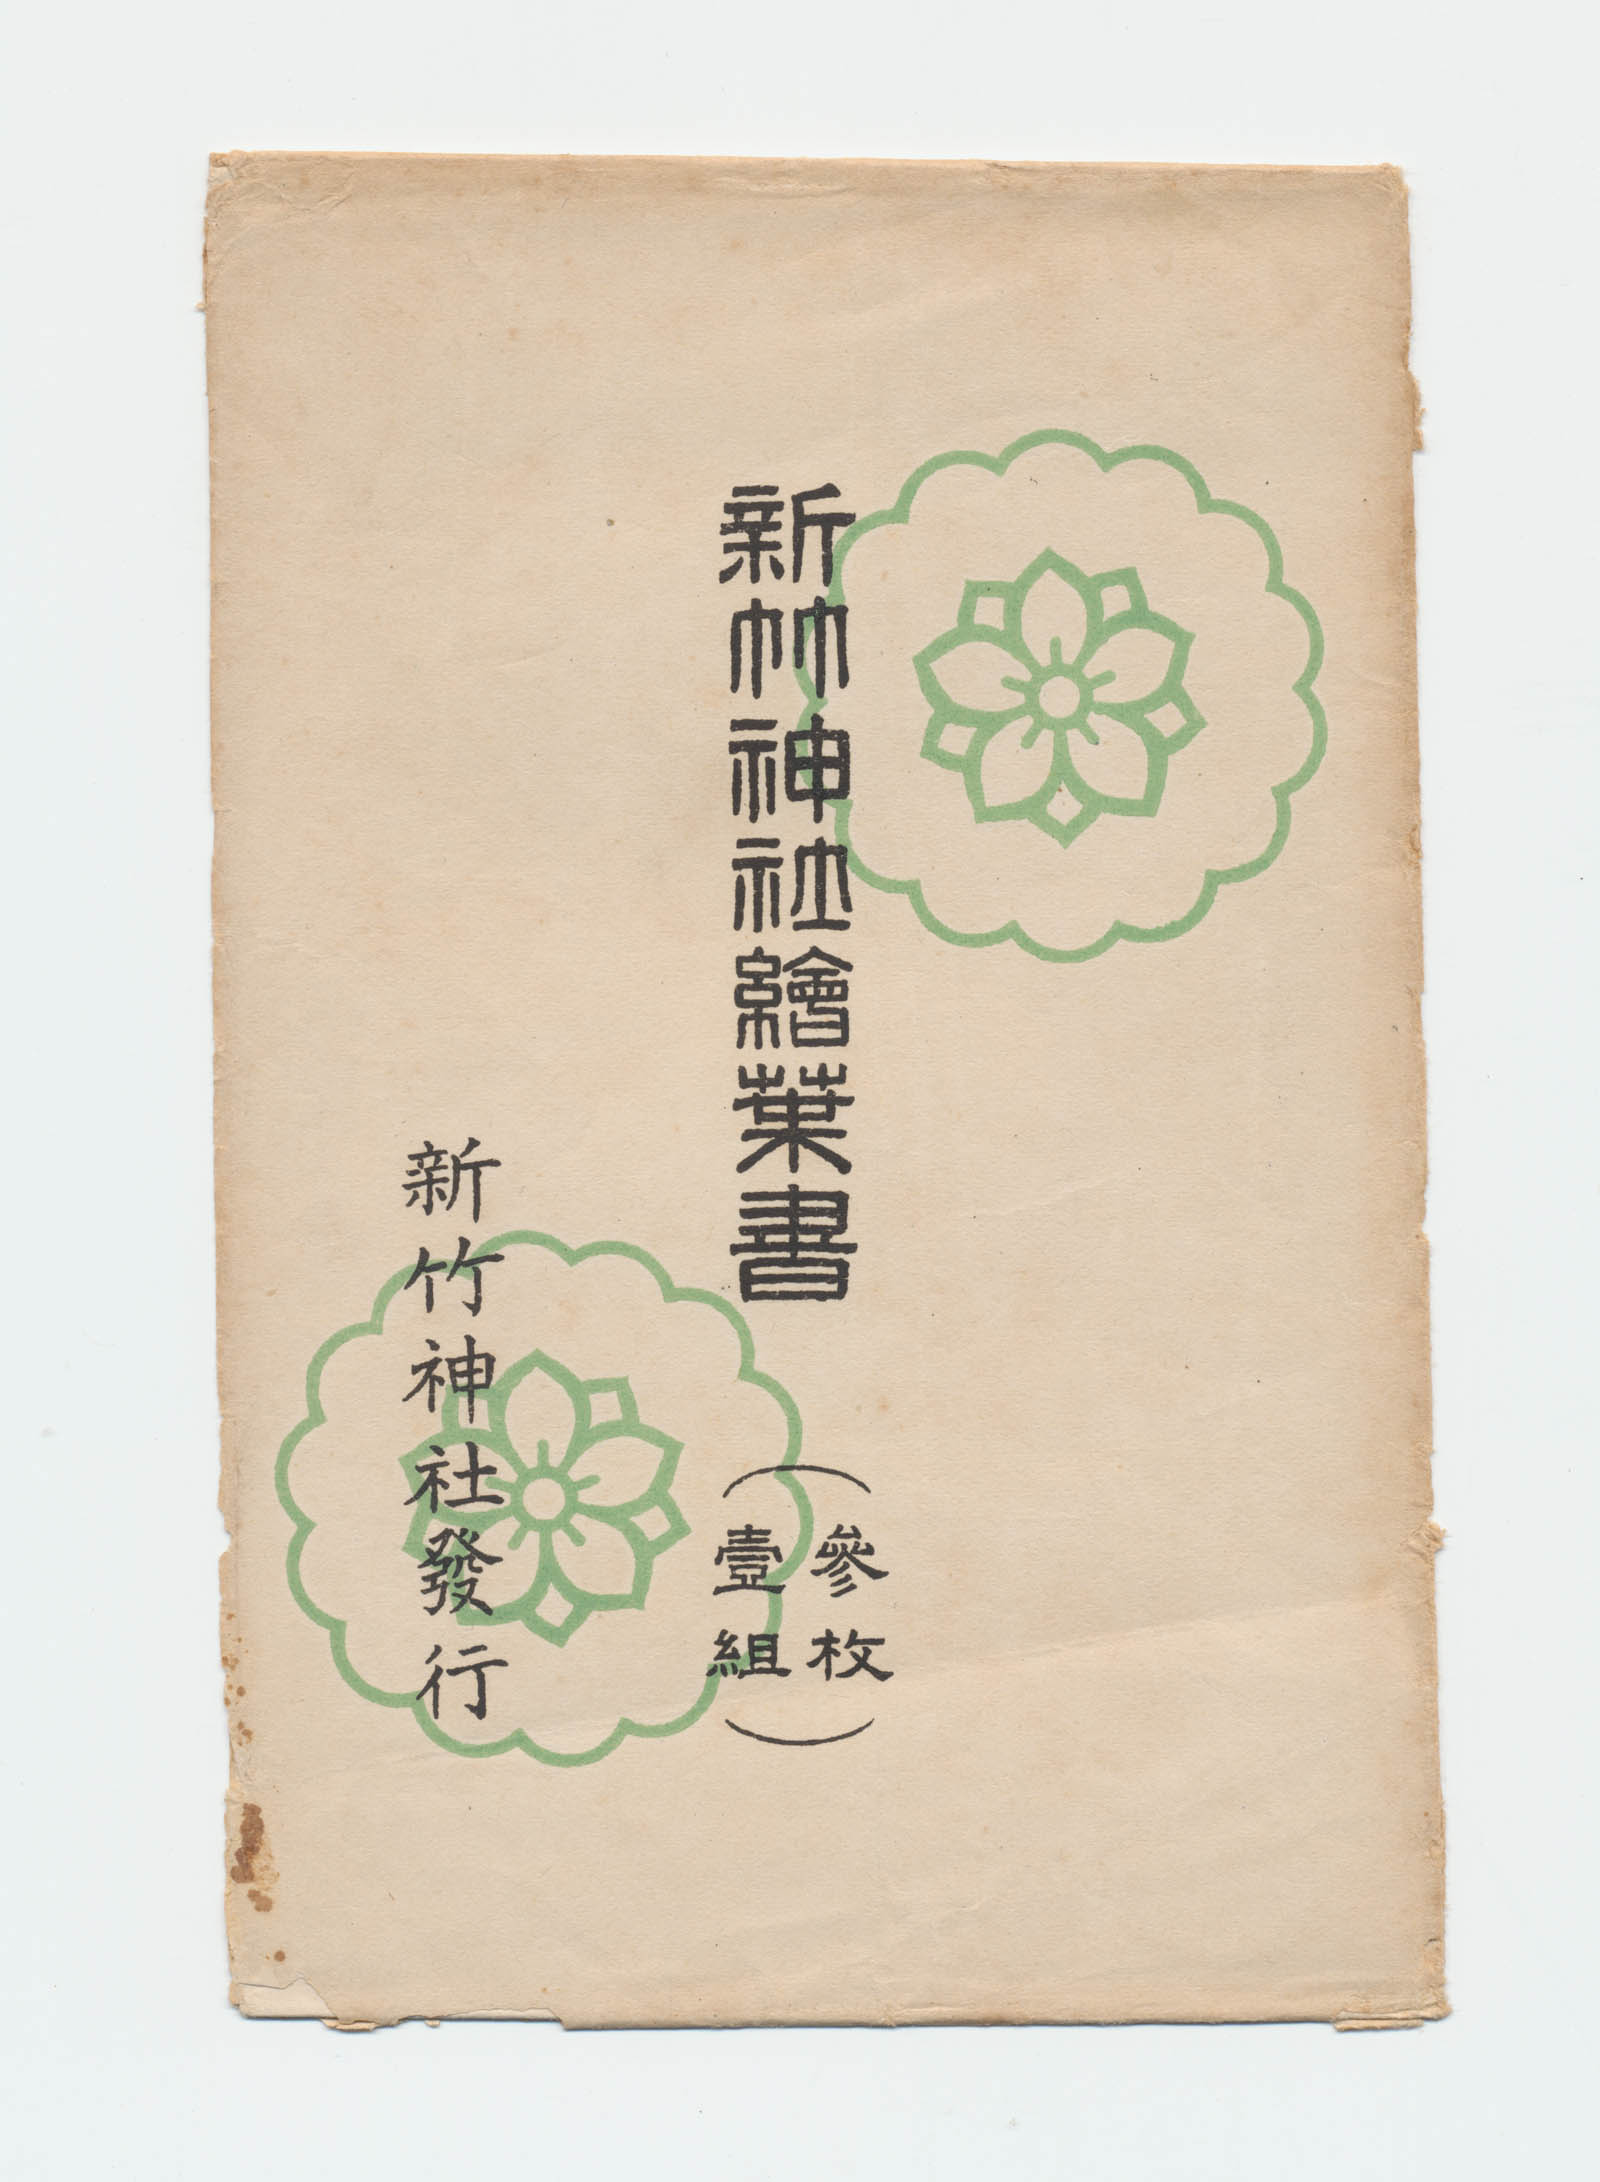 新竹神社繪葉書
（參枚
壹組）
新竹神社發行